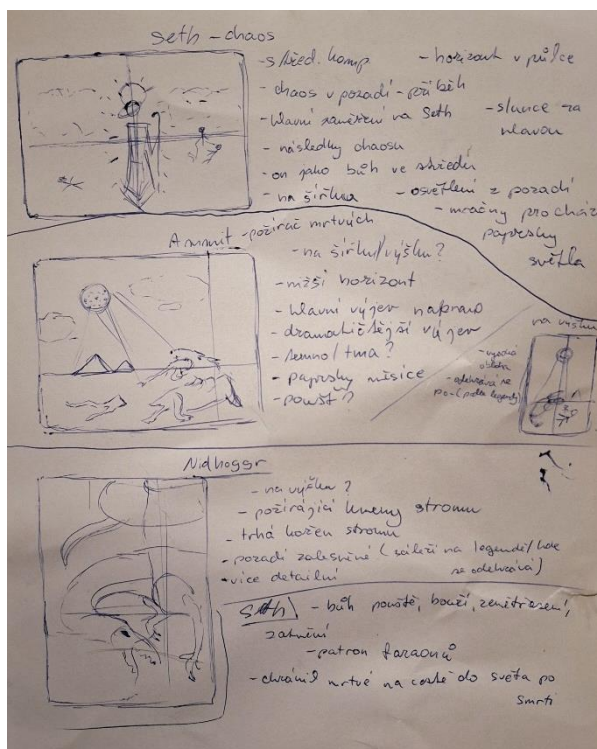 Seth - chaos
- střed. komp
- horizont v půlce
- chaos v pozadí - příběh
- hlavní zaměření na Seth
- slunce za hlavou
- následky chaosu
- on jako bůh ve středu
- na šířku
- osvětlení z pozadí
- mračny prochází paprsky světla
Ammit - požírač mrtvých
- na šířku/výšku?
- nižší horizont
- hlavní výjev napravo
- dramatičtější výjev
- temno/tma?
- paprsky měsíce
- poušť?
na výšku
Nidhoggr
- na výšku?
- požírající kmeny stromu
- trhá kořen stromu
- pozadí zalesněné (záleží na legendě/kde
se odehrává)
- více detailní
Seth
- bůh pouště, bouří, zemětřesení,
zatmění
- patron faraonů
- chránil mrtvé na cestě do světa po
smrti